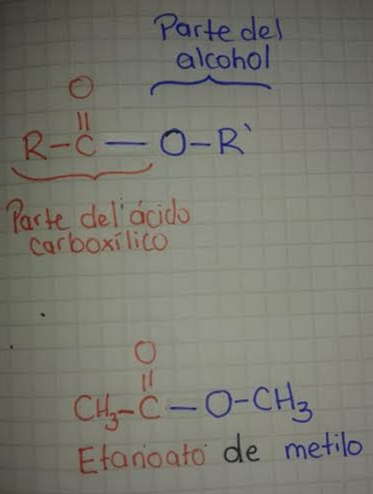 Parte del
alcohol
O
||
R-C-O-R`
Parte del ácido
carboxílico
O
||
CH₃-C-O-CH₃
Etanoato de metilo